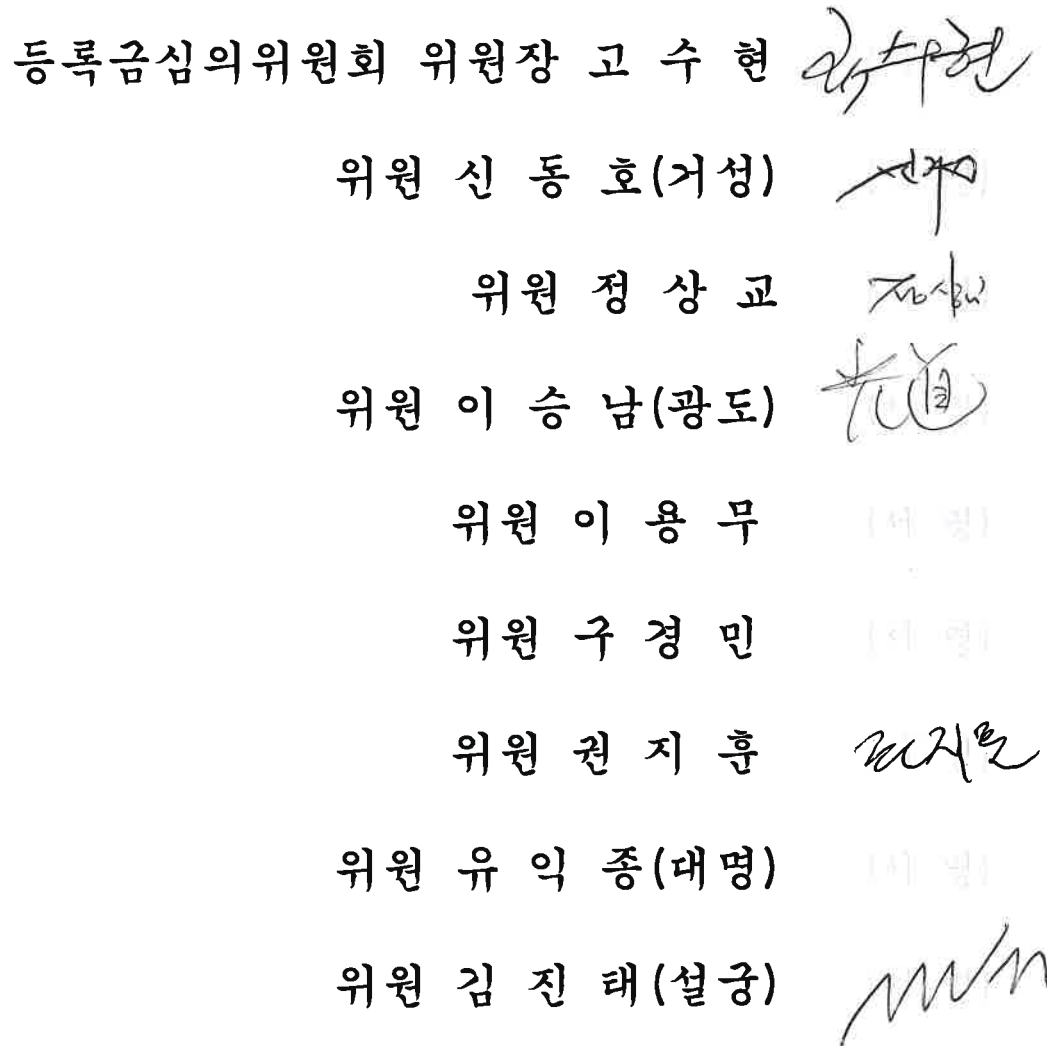 등록금심의위원회 위원장 고 수 현
위원 신 동 호(거성)
위원 정 상 교
위원 이 승 남(광도) 光道
위원 이 용 무 (서 명)
위원 구 경 민 (서 명)
위원 권 지 훈 권지훈
위원 유 익 종(대명) (서 명)
위원 김 진 태(설궁)